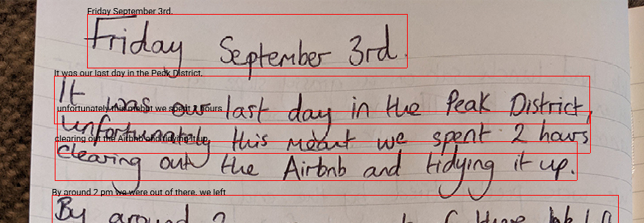 Friday September 3rd.
Friday September 3rd.
It was our last day in the Peak District.
It was our last day in the Peak District,
unfortunately this meant we spent 2 hours
unfortunately this meant we spent 2 hours
clearing out the Airbnb and tidying it up.
clearing out the Airbnb and tidying it up.
By around 2 pm we were out of there. we left
By around 2